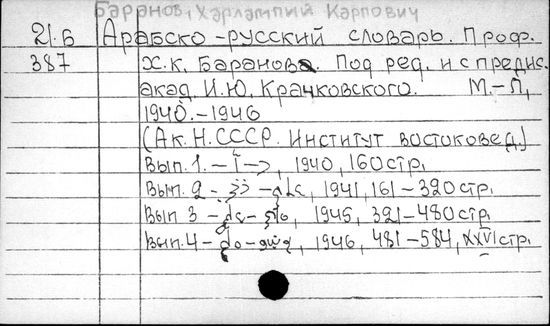 Баранов, Харлампий Карпович
21.б Арабско-русский словарь. Проф.
387 Х.К. Баранова. Под ред. и с предис.
акад. И.Ю. Крачковского. М.-Л,
1940.-1946
(Ак.Н.СССР. Институт востоковед.)
Вып.1.-, 1940, 160стр.
Вып.2-, 1941, 161-320стр.
Вып 3-, 1945, 321-480стр.
Вып.4-, 1946, 481-584, XXVIстр.